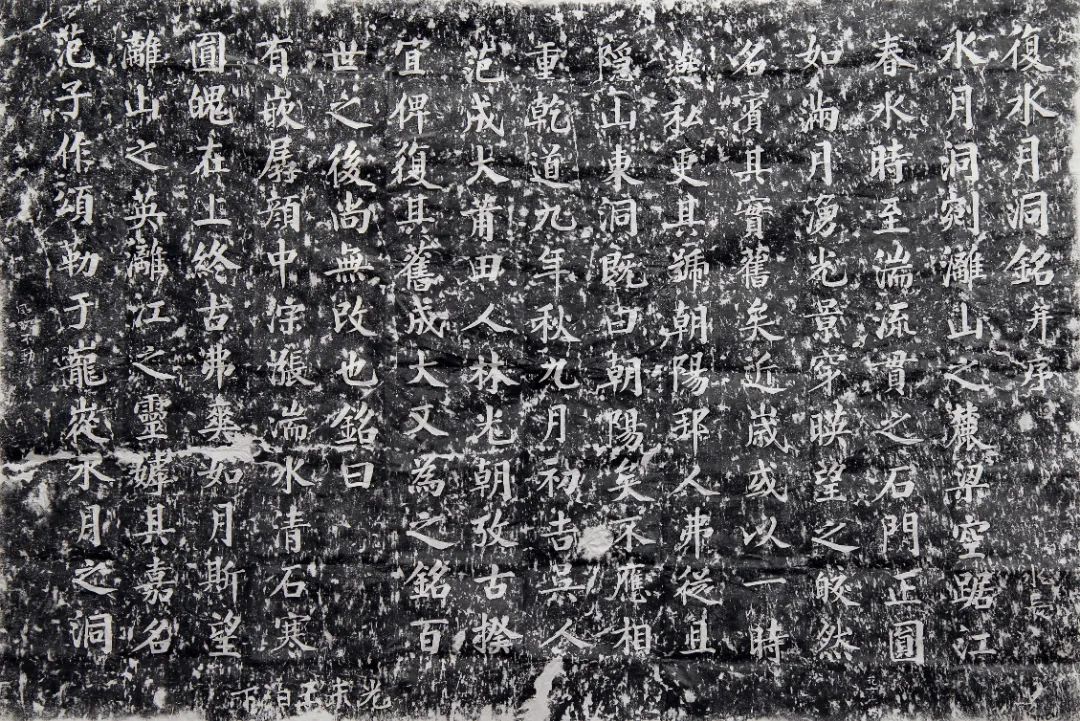 復水月洞銘并序
水月洞剜灕山之麓梁空踞江
春水時至湍流貫之石門正圓
如滿月湧光景穿映望之皎然
名賓其實舊矣近歲或以一時
燕私更其號朝陽邦人弗從且
隱山東洞既曰朝陽矣不應相
重乾道九年秋九月初吉吳人
范成大莆田人林光朝攷古揆
宜俾復其舊成大又為之銘百
世之後尚無改也銘曰
有嵌孱顏中淙漲湍水清石寒
圓魄在上終古弗爽如月斯望
灕山之英灕江之靈嫭其嘉名
范子作頌勒于巃嵸水月之洞